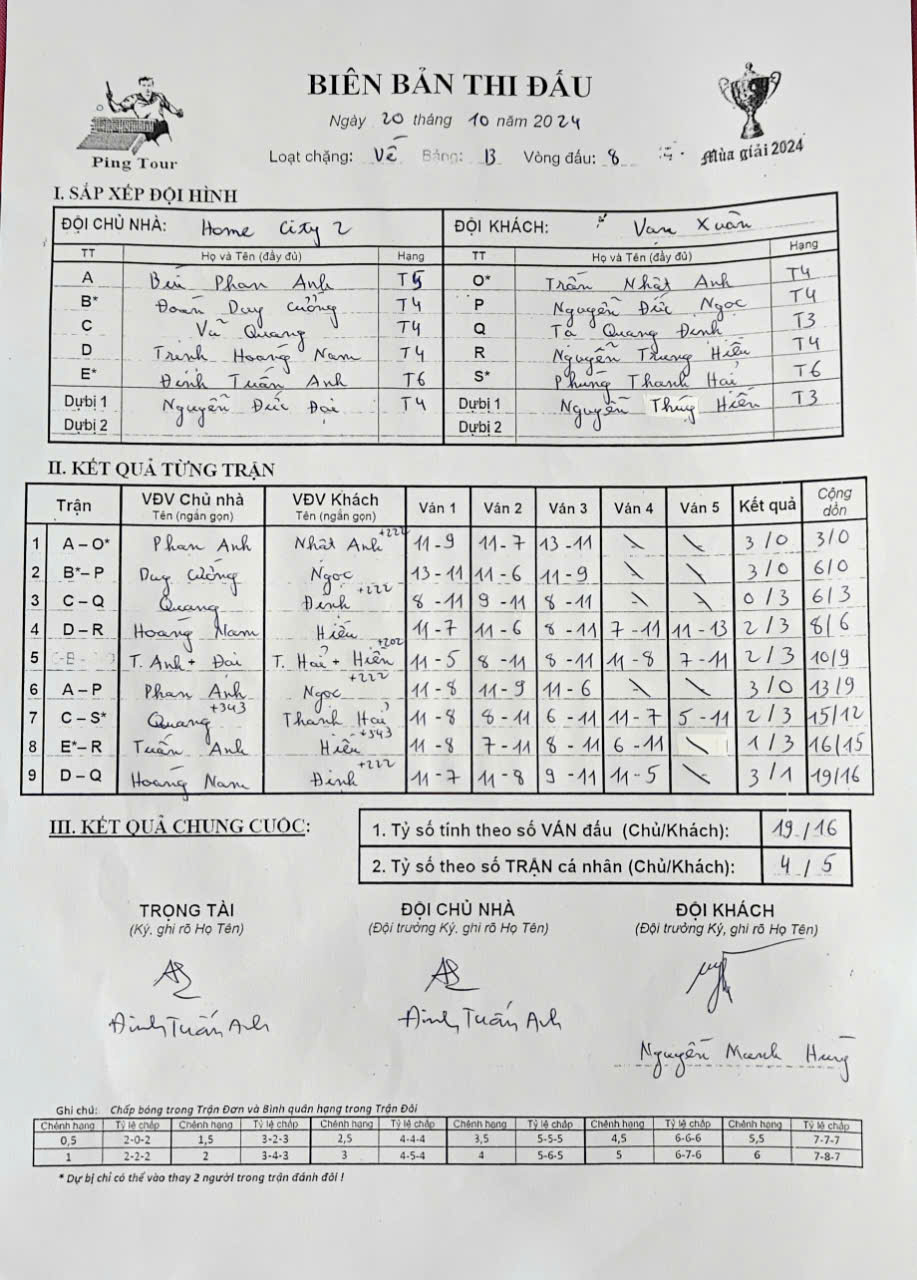 BIÊN BẢN THI ĐẤU
Ngày 20 tháng 10 năm 2024
Ping Tour
Loạt chặng: Về Bảng: B Vòng đấu: 8
Mùa giải 2024
I. SẮP XẾP ĐỘI HÌNH
ĐỘI CHỦ NHÀ: Home City 2 ĐỘI KHÁCH: Vạn Xuân
TT Họ và Tên (đầy đủ) Hạng TT Họ và Tên (đầy đủ) Hạng
A Bùi Phan Anh T5 O* Trần Nhật Anh T4
B* Đoàn Duy Cường T4 P Nguyễn Đức Ngọc T4
C Vũ Quang T4 Q Tạ Quang Định T3
D Trịnh Hoàng Nam T4 R Nguyễn Trung Hiếu T4
E* Đinh Tuấn Anh T6 S* Phùng Thanh Hải T6
Dựbị 1 Nguyễn Đức Đại T4 Dựbị 1 Nguyễn Thúy Hiền T3
Dựbị 2 Dựbị 2
II. KẾT QUẢ TỪNG TRẬN
Trận VĐV Chủ nhà Tên (ngắn gọn) VĐV Khách Tên (ngắn gọn) Ván 1 Ván 2 Ván 3 Ván 4 Ván 5 Kết quả Cộng dồn
1 A – O* Phan Anh Nhật Anh +222 11-9 11-7 13-11 \ \ 3/0 3/0
2 B*– P Duy Cường Ngọc 13-11 11-6 11-9 \ \ 3/0 6/0
3 C – Q Quang Định +222 8-11 9-11 8-11 \ \ 0/3 6/3
4 D – R Hoàng Nam Hiếu 11-7 11-6 8-11 7-11 11-13 2/3 8/6
5 T. Anh + Đại T. Hải + Hiền +202 11-5 8-11 8-11 11-8 7-11 2/3 10/9
6 A – P Phan Anh Ngọc +222 11-8 11-9 11-6 \ \ 3/0 13/9
7 C – S* Quang +343 Thanh Hải 11-8 8-11 6-11 11-7 5-11 2/3 15/12
8 E*– R Tuấn Anh Hiếu +343 11-8 7-11 8-11 6-11 \ 1/3 16/15
9 D – Q Hoàng Nam Định +222 11-7 11-8 9-11 11-5 \ 3/1 19/16
III. KẾT QUẢ CHUNG CUỘC:
1. Tỷ số tính theo số VÁN đấu (Chủ/Khách): 19/16
2. Tỷ số theo số TRẬN cá nhân (Chủ/Khách): 4/5
TRỌNG TÀI ĐỘI CHỦ NHÀ ĐỘI KHÁCH
(Ký. ghi rõ Họ Tên) (Đội trưởng Ký. ghi rõ Họ Tên) (Đội trưởng Ký, ghi rõ Họ Tên)
Đinh Tuấn Anh Đinh Tuấn Anh
Nguyễn Mạnh Hùng
Ghi chú: Chấp bóng trong Trận Đơn và Bình quân hạng trong Trận Đôi
Chênh hạng Tỷ lệ chấp Chênh hạng Tỷ lệ chấp Chênh hạng Tỷ lệ chấp Chênh hạng Tỷ lệ chấp Chênh hạng Tỷ lệ chấp Chênh hạng Tỷ lệ chấp
0,5 2-0-2 1,5 3-2-3 2,5 4-4-4 3,5 5-5-5 4,5 6-6-6 5,5 7-7-7
1 2-2-2 2 3-4-3 3 4-5-4 4 5-6-5 5 6-7-6 6 7-8-7
* Dự bị chỉ có thể vào thay 2 người trong trận đánh đôi !